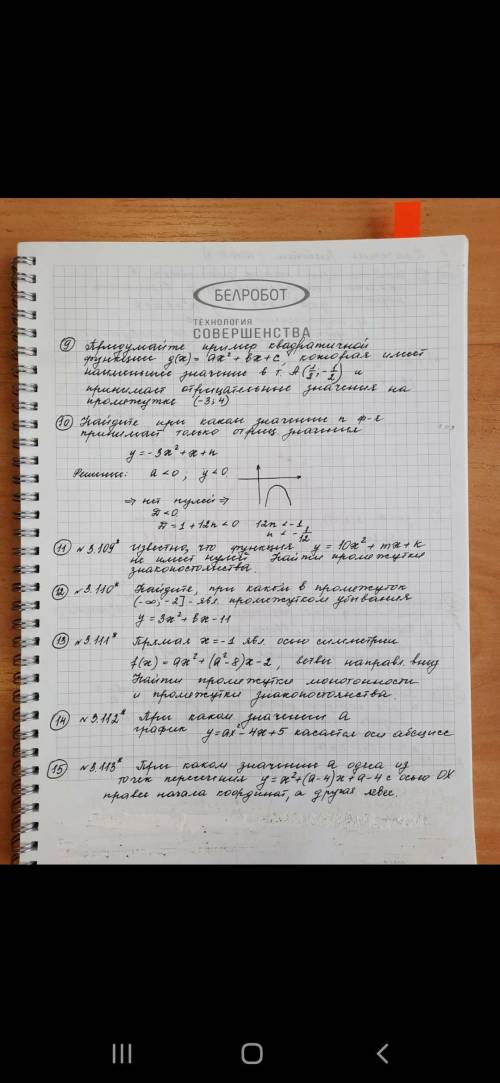 БЕЛРОБОТ
ТЕХНОЛОГИЯ
СОВЕРШЕНСТВА
9 Придумайте пример квадратичной
функции g(x) = ax² + bx + c, которая имеет
наименьшее значение в т. A(1/2; -1/2) и
принимает отрицательные значения на
промежутке (-3; 4)
10 Найдите при каком значении n ф-я
принимает только отриц. значения
y = -3x² + x + n
Решение: a < 0; y < 0
⇒ нет нулей ⇒
D < 0
D = 1 + 12n < 0 12n < -1
n < -1/12
11 №3.109* Известно, что функция y = 10x² + mx + k
не имеет нулей. Найти промежутки
знакопостоянства.
12 №3.110* Найдите, при каком в промежуток
(-∞; -2] - явл. промежутком убывания
y = 3x² + bx - 11
13 №3.111* Прямая x = -1 явл осью симметрии
f(x) = ax² + (a² - 8)x - 2, ветви направл. вниз
Найти промежутки монотонности
и промежутки знакопостоянства.
14 №3.112* При каком значении a
график y = ax² - 4x + 5 касается оси абсцисс
15 №3.113* При каком значении a одна из
точек пересечения y = x² + (a - 4)x + a - 4 с осью OX
правее начала координат, а другая левее.